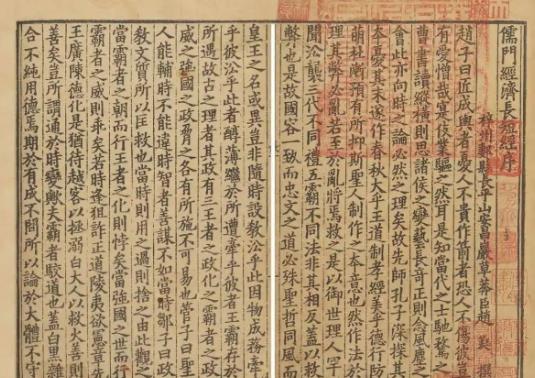 儒門經濟長短經序
梓州郪縣長平山安昌巖草莽臣趙 蕤 撰
趙子曰匠成輿者憂人不貴作箭者恐人不傷彼豈
有愛憎哉寔伎業驅之然耳是知當代之士馳騖之
曹書讀縱橫則思諸侯之變藝長奇正則念風塵之
會此亦向時之論必然之理矣故先師孔子深探其
本憂其末遂作春秋大乎王道制孝經美乎德行防
萌杜漸預有所抑斯聖人制作之本意也然作法於
理其弊必亂若至於亂將焉救之是以御世理人罕
聞沿襲三代不同禮五霸不同法非其相反蓋以救
弊也是故國容一致而忠文之道必殊聖哲同風而
皇王之名或異豈非隨時設教沿乎此因物成務牽
乎彼沿乎此者醇薄繼於所遭牽乎彼者王霸存於
所遇故古之理者其政有三王者之政化之霸者之政
威之強國之政脅之各有所施不可易也管子曰聖
人能輔時不能違時智者善謀不如當時鄒子曰政
教文質所以匡救也當時則用之過則捨之由此觀之
當霸者之朝而行王者之化則悖矣當強國之世而行
霸者之威則乖矣若時逢狙詐正道陵夷欲憲章先
王廣陳德化是猶待越客以拯溺白大人以救火善則
善矣豈所謂通於時變歟夫霸者駁道也蓋白黑雜
合不純用德焉期於有成不問所以論於大體不守